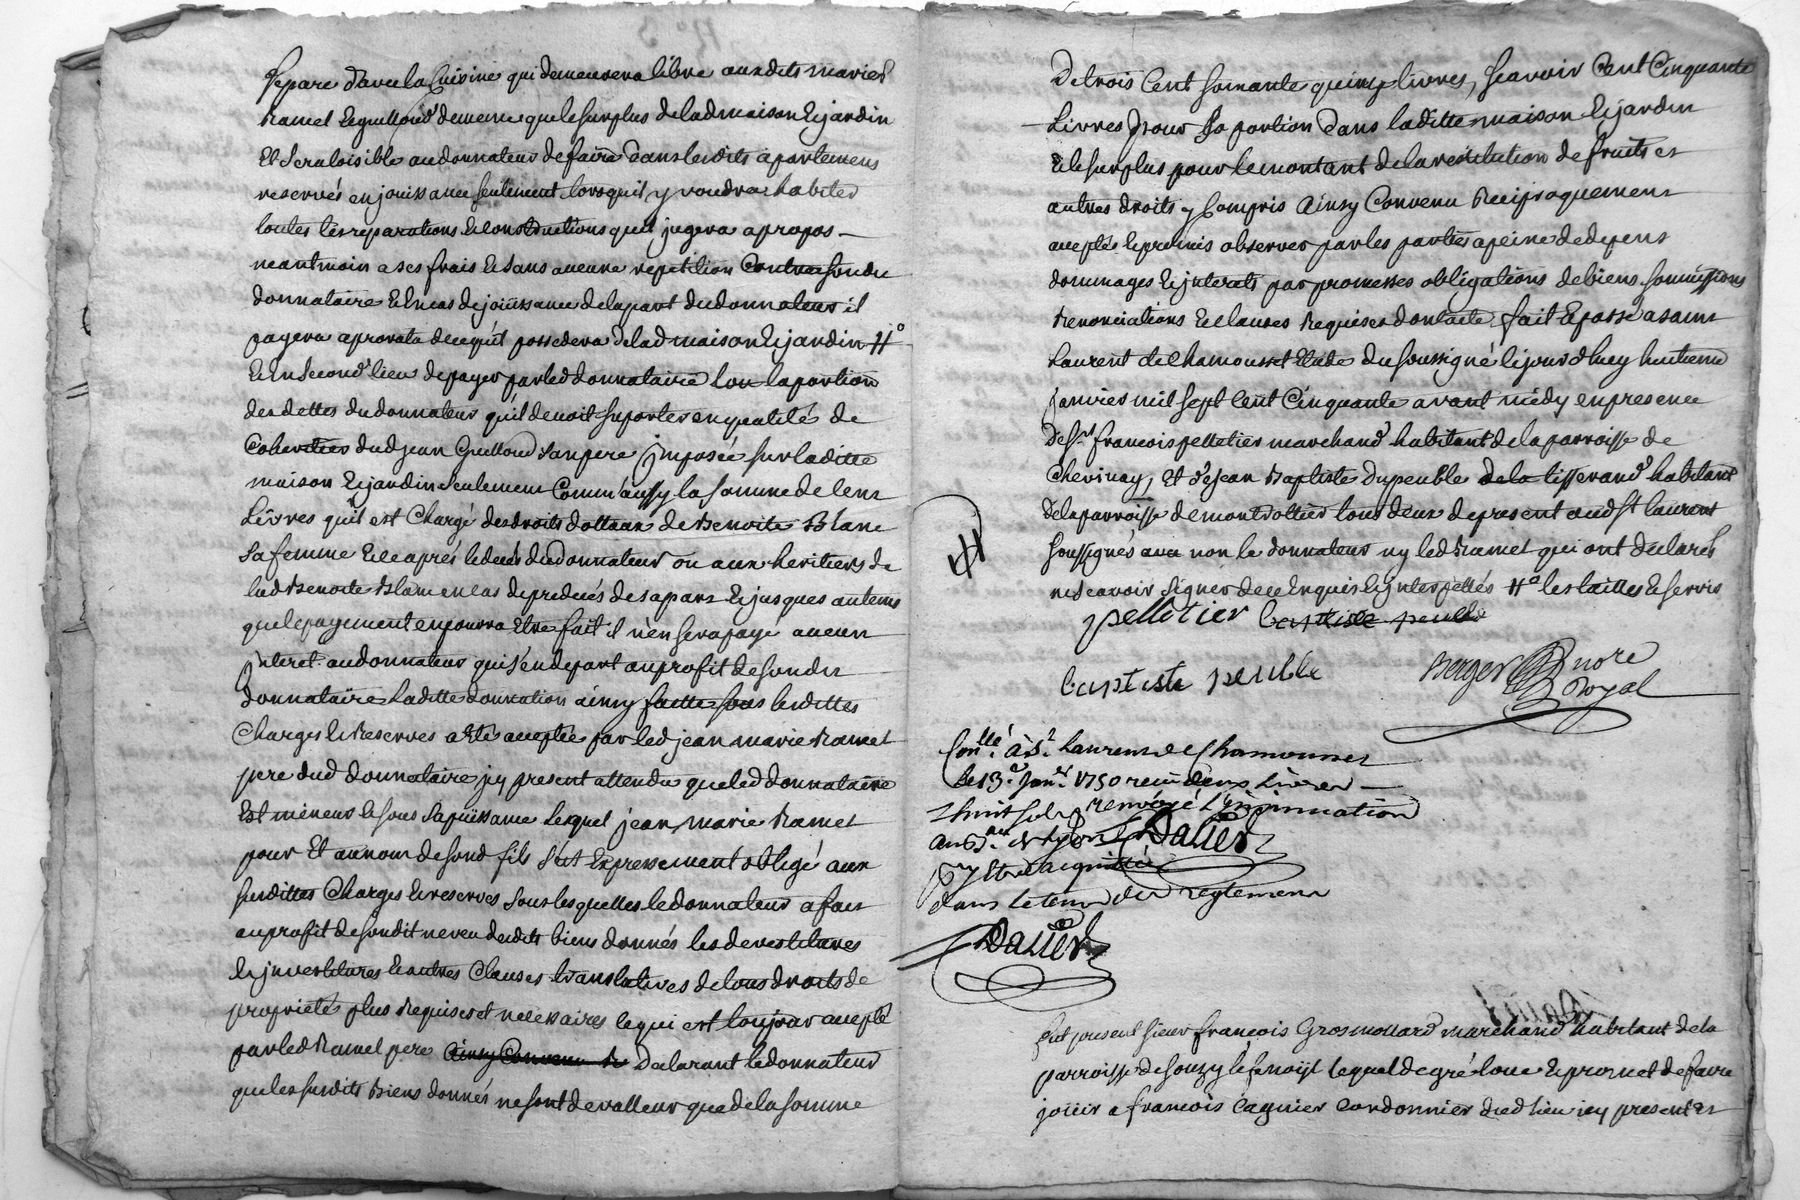 separé davec la Cuisine qui demeurera libre auxdits mariés
Ramel et guilloud de meme que le surplus de lad maison et jardin
Et sera loisible au donnateur de faire dans lesdits apartemens
reservés en jouissance seulement lorsquil y voudra habiter
toutes les reparations et constructions quil jugera apropos
neantmoin a ses frais et sans aucune repetition contre sondit
donnataire et en cas de joüissance de la part dudonnateur il
payera aprorata de ce qu'il possedera de lad maison et jardin #°
et En second lieu de payer par led donnataire tou la portion
des dettes du donnateur qu'il devoit suporter en qualité de
Coheritier dud jean Guilloud son pere jmposée sur laditte
maison et jardin seulement Comm'aussy la somme de cent
Livres qu'il est Chargé des droits dottaux de Benoite Blanc
sa femme et ce aprés le deces du donnateur ou aux heritiers de
lad Benoite Blanc en cas de predecés de sa part et jusques autems
que le payement en pourra etre fait il n'en sera payé aucun
jnteret au donnateur qui s'en depart au profit de sondit
donnataire Laditte donnation ainsy faitte sous lesdittes
Charges et Reserves a eté acceptée par led jean marie Ramel
pere dud donnataire jcy present attendu que led donnataire
Est mineur et sous sa puissance Lequel jean marie Ramel
pour Et au nom de sond fils s'est Expressement obligé aux
susdittes Charges et reserves sous lesquelles le donnateur a fait
au profit de sondit neveu desdits biens donnés les devestitures
et jnvestitures et autres Clauses translatives de tous droits de
proprieté plus Requises et necessaires le qui est toujour accepté
par led Ramel pere ainsy Convenu Re Declarant le donnateur
que les susdits Biens donnés ne sont de valleur que de la somme
De trois Cent soixante quinze livres, scavoir Cent Cinquante
Livres pour sa portion dans laditte maison et jardin
et le surplus pour le montant de la restitution de fruits et
autres droits y Compris Ainsy Convenu Reciproquement
acceptés et promis observer par les parties a peine de depens
dommages et jnterets par promesses obligations de biens soumissions
Renonciations et clauses Requises dont acte fait et passé a saint
Laurent de Chamousset Etude du soussigné le jourd'huy huitieme
janvier mil sept Cent Cinquante avant midy en presence
De sr francois pelletier marchand habitant de la parroisse de
Chevinay, et de jean Baptiste Dupeuble de la tisserand habitant
de la parroisse de montrottier tous deux de present aud St laurent
soussignés aux non le donnateur ny led Ramel qui ont declaré
ne scavoir signer de ce Enquis et jnterpellés #° les tailles et servis
#
pelletier baptiste peuble
baptiste peuble
Berger nore
Royal
Conllé à St Laurens de Chamousset
Le 13e Janer 1750 reçu deux Livres
huit sols renvoyé L'insinuation
au de Lyon Dalier
y Etre acquittée
dans le tems du reglement
Dalier
Fut present sieur françois Grosmollard marchand habitant de la
parroisse de souzy lequel de gré loue et promet de faire
joüir a francois Cagnier Cordonnier dud lieu jcy present et